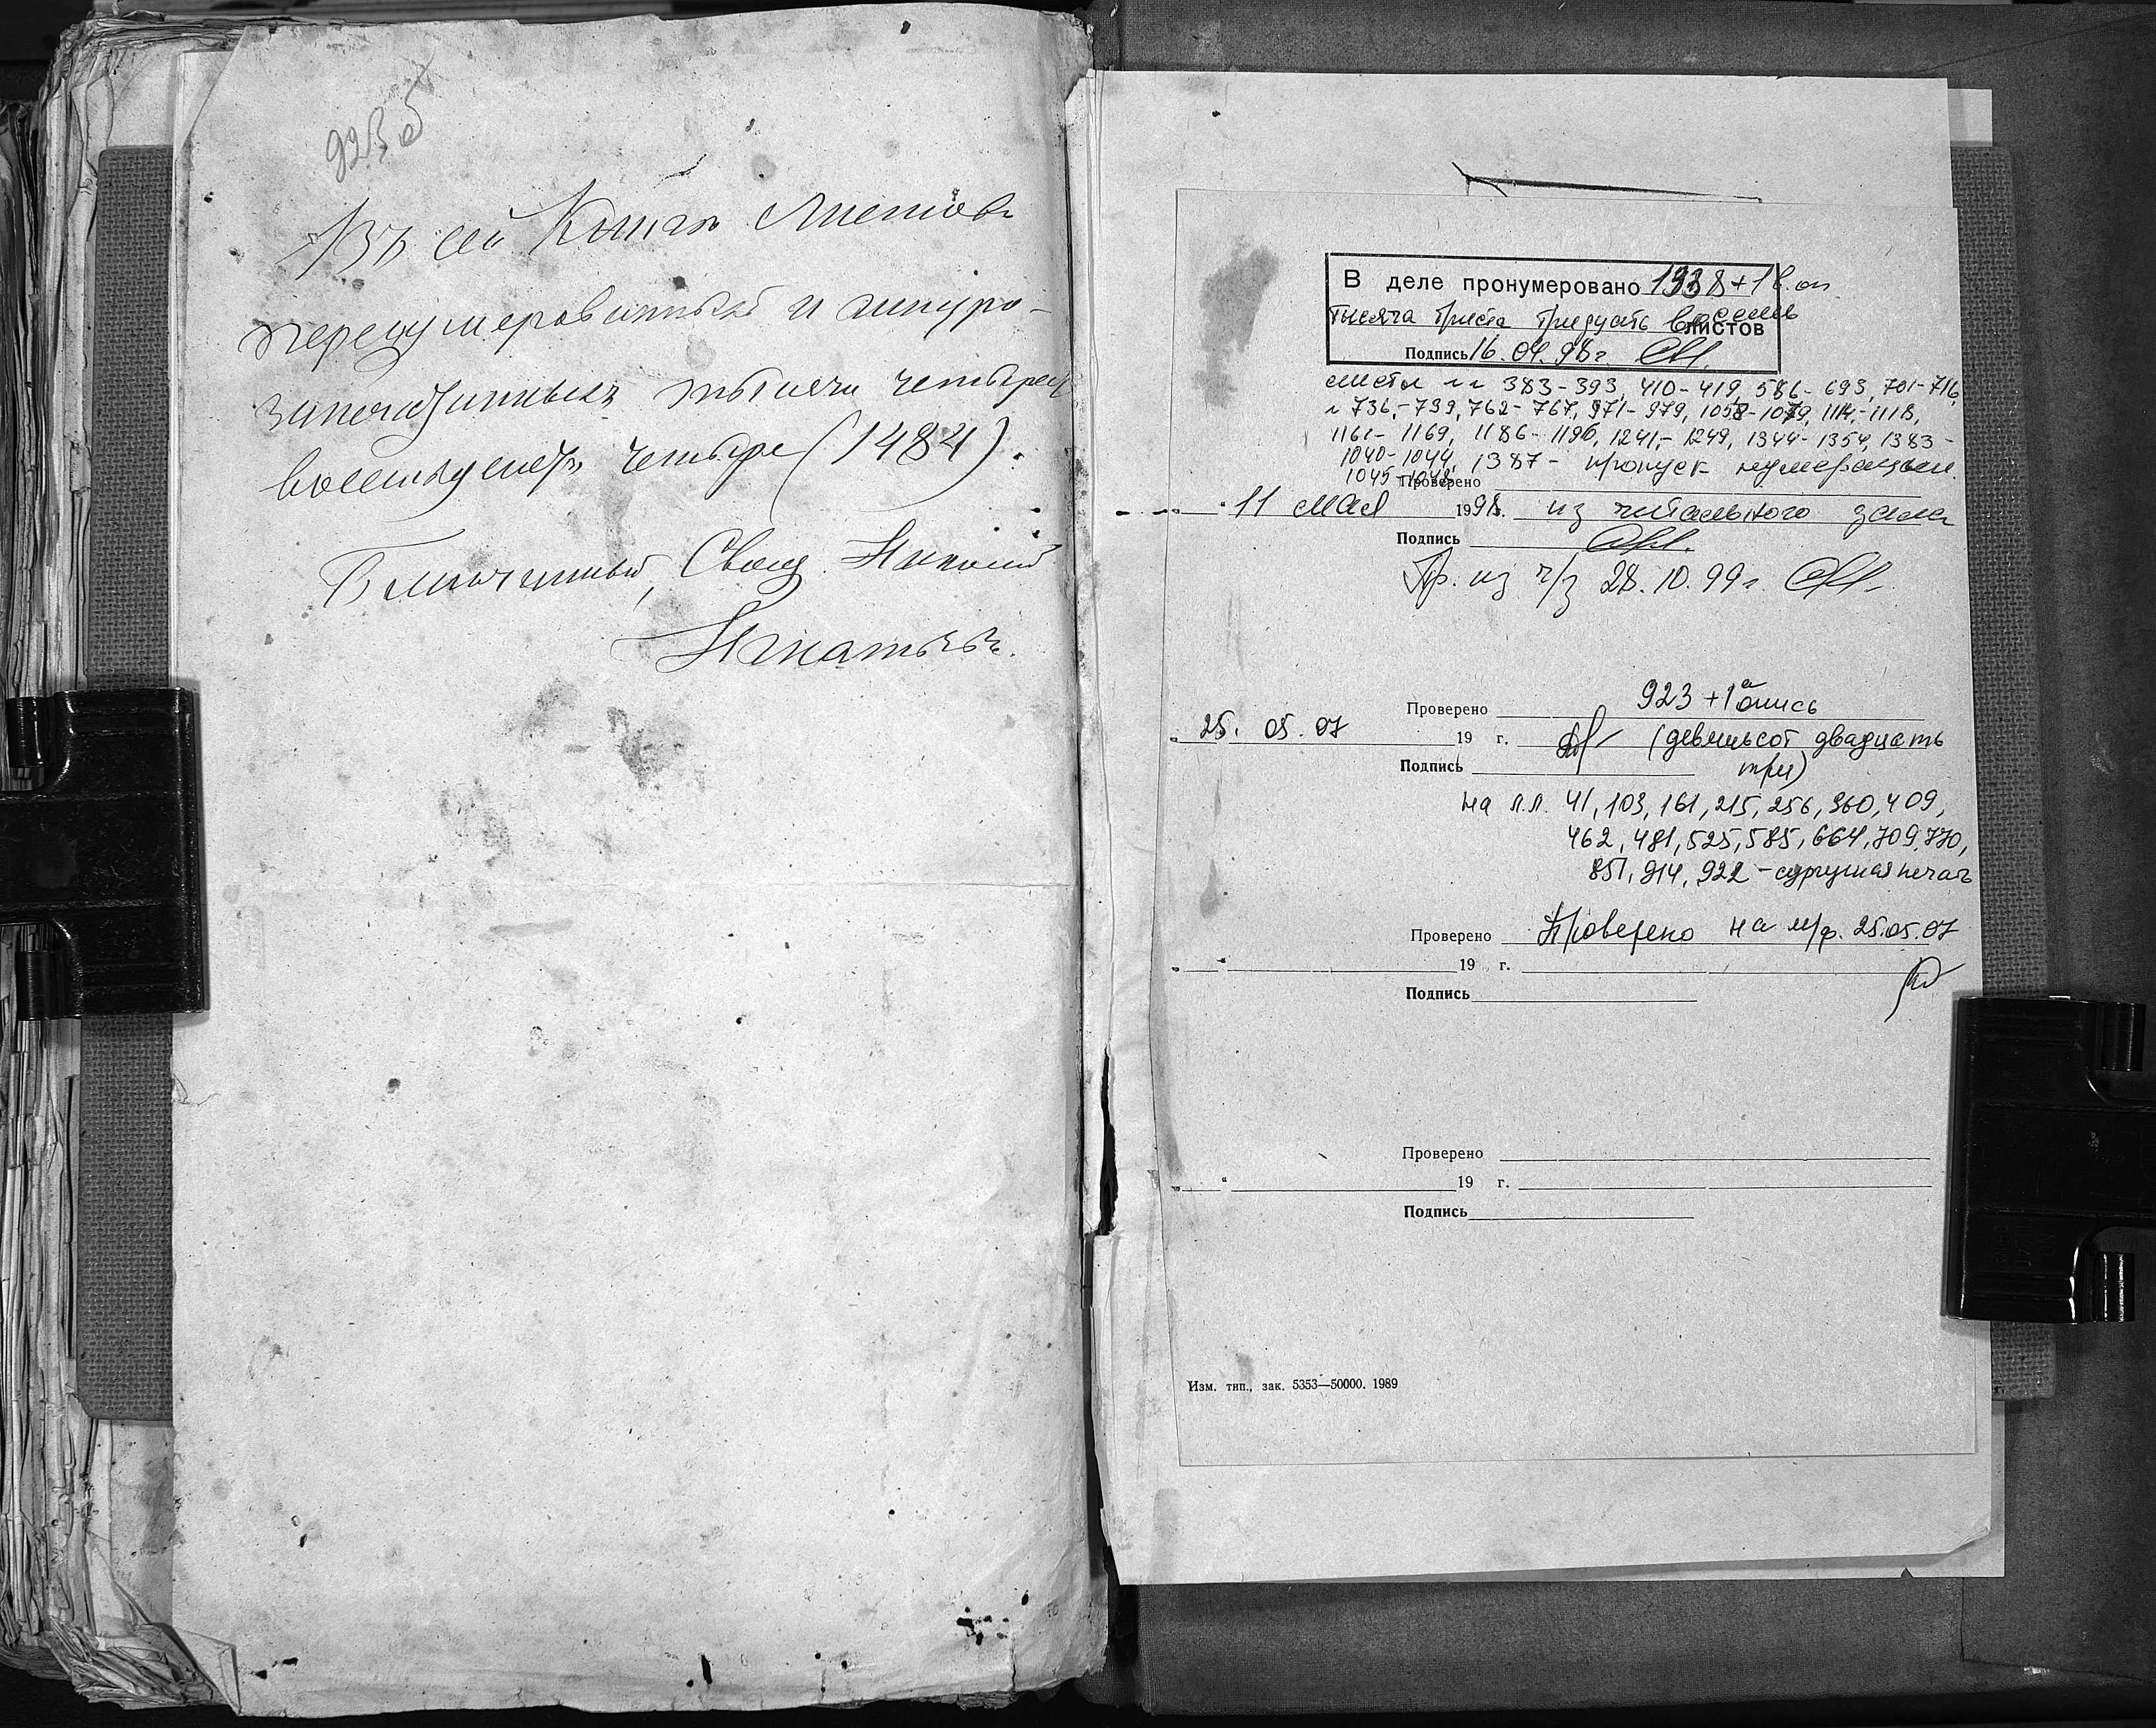 923 об
Въ сей Книгѣ Листовъ
перенумерованныхъ и шнуро-
запечатанныхъ тысяча четыреста
восемьдесятъ четыре (1484).
Благочинный, Свящ. Николай
Игнатьевъ.
В деле пронумеровано 1338+1 в. оп.
тысяча триста тридцать восемь
листов
Подпись 16.04.98г
листы 383-393, 410-419, 586-693, 701-716,
736,-739, 762-767, 971-979, 1058-1079, 1114,-1118,
1161-1169, 1186-1196, 1241,-1249, 1344-1354, 1383-
1040-1044, 1387- пропуск нумерации.
1045-1048,
Проверено
11 мая 1998г. из читального зала
Подпись
Пр. из ч/з 28.10.99г.
Проверено 923+1а опись
25. 05. 07 19 г. (девятьсот двадцать
Подпись три)
На л.л. 41, 103, 161, 215, 256, 360, 409,
462, 481, 525, 585, 664, 709, 770,
851, 914, 922 - сургучная печать
Проверено Проверено на м/ф. 25.05.07
19 г.
Подпись
Проверено
19 г.
Подпись
Изм. тип., зак. 5353—50000. 1989